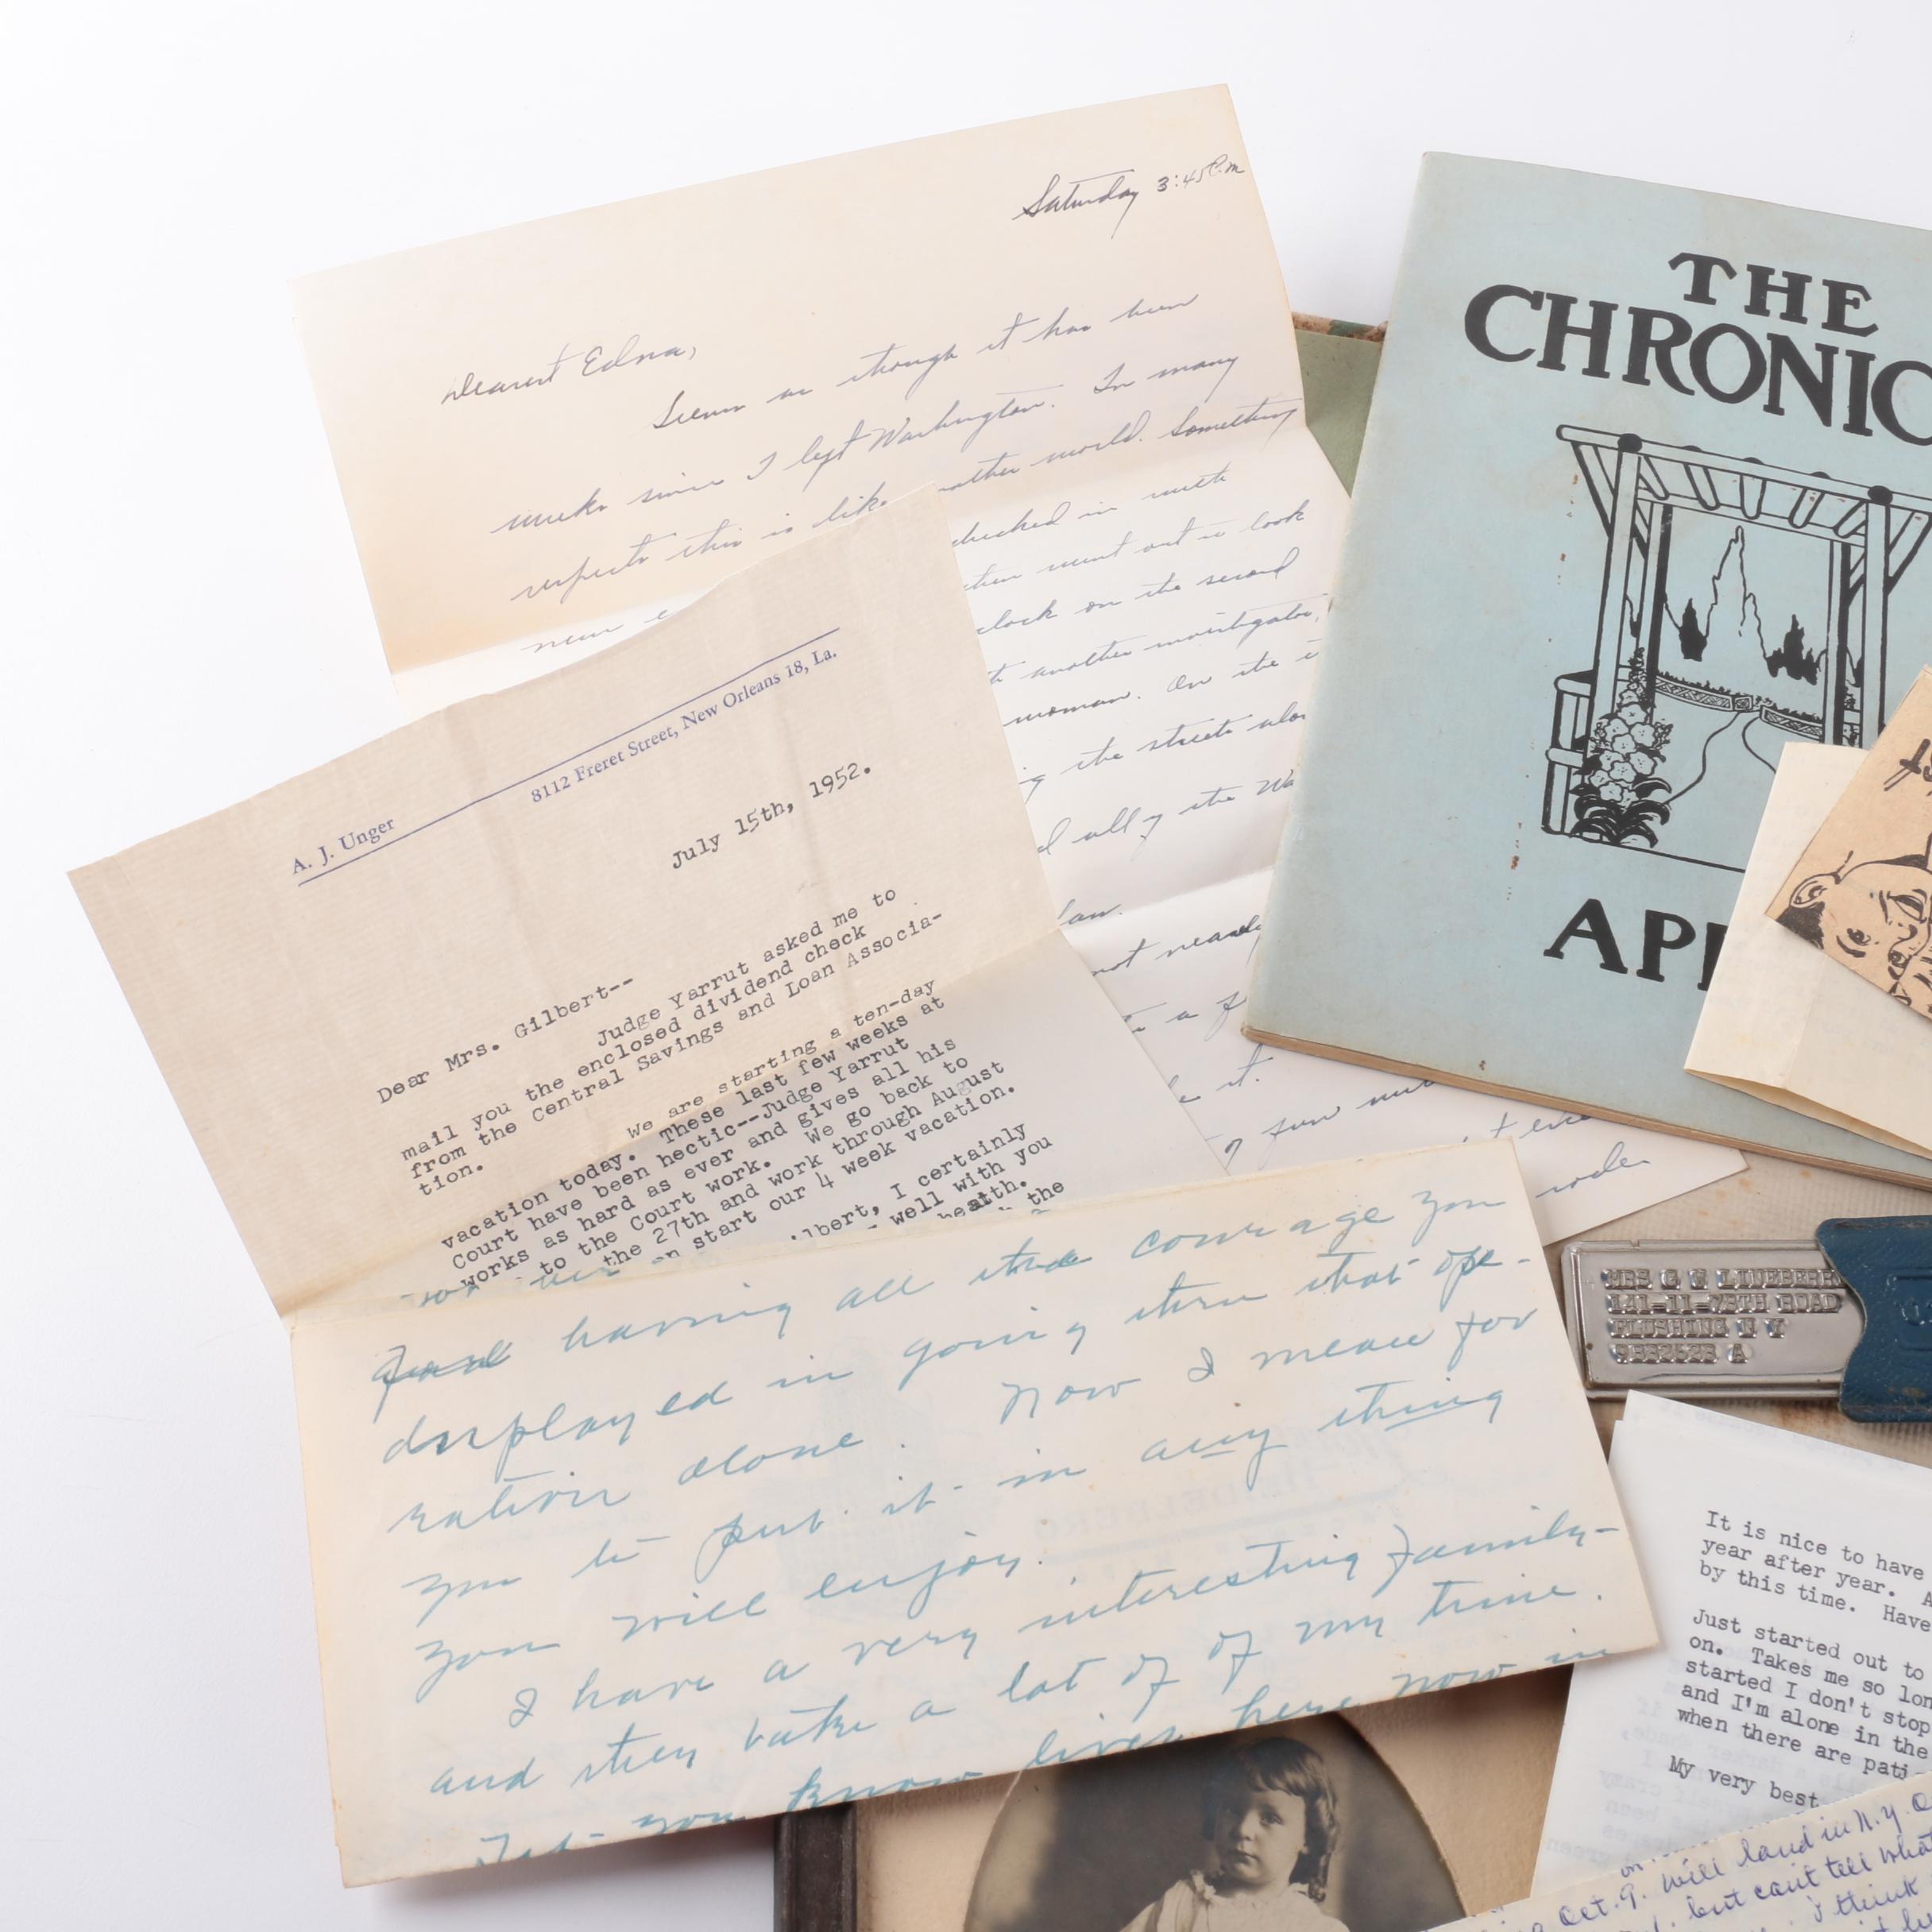 Saturday 3:45 P.m
Dearest Edna,
Seems as though it has been
weeks since I left Washington. In many
respects this is like another world. Something
new
checked in with
then went out to look
clock on the second
another investigator,
woman. On the
the streets
all of the
not nearly
a
it.
fun
A. J. Unger
8112 Freret Street, New Orleans 18, La.
July 15th, 1952.
Dear Mrs. Gilbert--
Judge Yarrut asked me to
mail you the enclosed dividend check
from the Central Savings and Loan Associa-
tion.
We are starting a ten-day
vacation today. These last few weeks at
Court have been hectic--Judge Yarrut
works as hard as ever and gives all his
to the Court work. We go back to
the 27th and work through August
start our 4 week vacation.
lbert, I certainly
well with you
health.
the
having all the courage you
displayed in going thru that ope-
ration alone. Now I mean for
you to put it in any thing
you will enjoy.
I have a very interesting family-
and they take a lot of of my time.
you know lives here now in
THE
CHRONIC
AP
MRS G W LINEBERR
141-11-78TH ROAD
FLUSHING N Y
It is nice to have
year after year. A
by this time. Have
Just started out to
on. Takes me so lon
started I don't stop
and I'm alone in the
when there are pati
My very best
Oct. 9. Will land in N.Y.
but can't tell what
I think